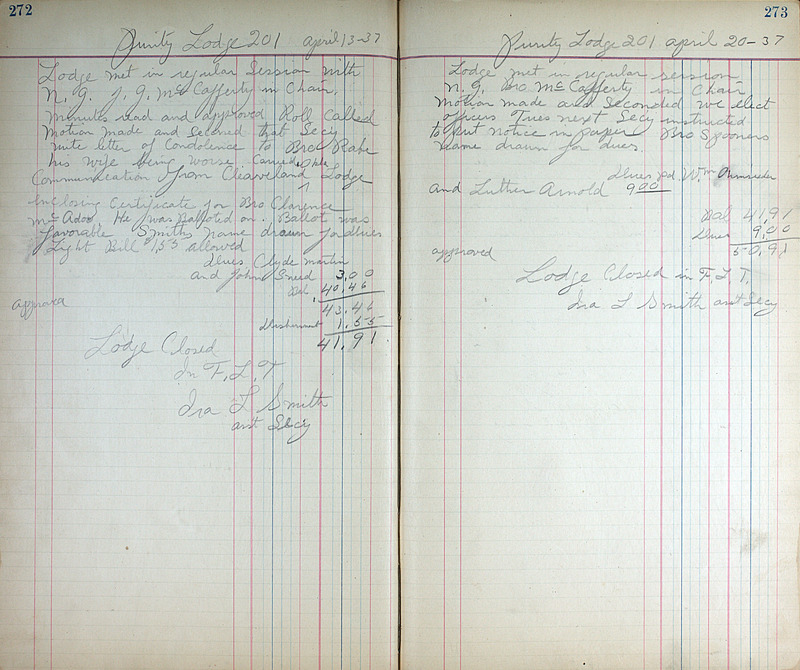 272
Purity Lodge 201 april 13-37
Lodge met in regular Session with
N. G. J. G. McCafferty in Chair,
minutes read and approved Roll Called
Motion made and Seconed that Secy
write letter of Condolence to Bro Rabe
his wife being worse. Carried,
Communication from Cleaveland Lodge
Enclosing Certificate for Bro Clarence
McAdoo, He was Balloted on. Ballot was
favorable Smiths name drawn for dues
Light Bill $1.55 allowed
Dues Clyde Martin
and John Sneed 3,00
Bal 40,46
approved
43,46
Disburment 1,55
41,91
Lodge Closed
In F, L, T
Ira L Smith
asst Secy
273
Purity Lodge 201 april 20-37
Lodge met in regular session
N. G. Bro McCafferty in Chair,
Motion made and Seconded we elect
officers Tues next Secy instructed
to put notice in paper Bro Spooners
name drawn for dues.
Dues pd. Wm
and Luther Arnold 9.00
Bal 41,91
Dues 9,00
50,91
approved
Lodge Closed in F, L, T,
Ira L Smith asst Secy